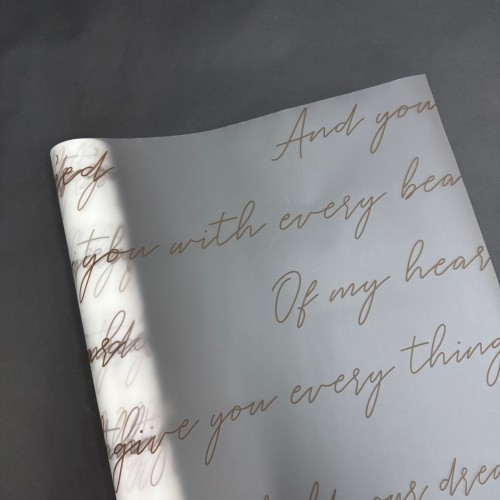 And you
you with every bea
Of my hear
give you every thing
your drea